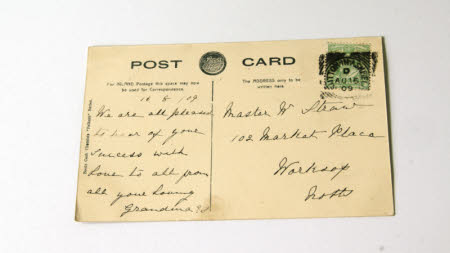 POST CARD
For INLAND Postage this space may now
be used for Correspondence.
The ADDRESS only to be
written here
16 8/09
We are all pleased
to hear of your
success with
love to all from
all your loving
Grandma
Master W Straw
102 Market Place
Worksop
Notts
AU 16
09